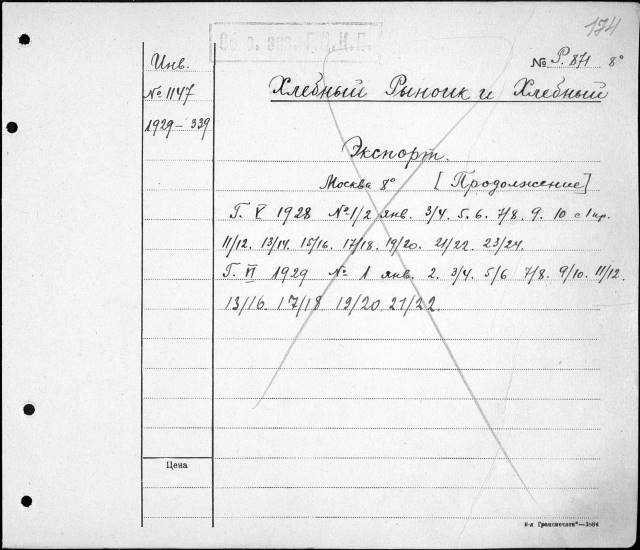 174
Инв.
№ Р. 871 8°
№ 1147
Хлебный Рынок и Хлебный
1929-339
Экспорт.
Москва 8° [Продолжение]
Г. V 1928 № 1/2 янв. 3/4. 5. 6. 7/8. 9. 10 с 1 пр.
11/12. 13/14. 15/16. 17/18. 19/20. 21/22. 23/24.
Г. VI 1929 № 1 янв. 2. 3/4. 5/6 7/8. 9/10. 11/12.
13/16. 17/18 19/20. 21/22.
Цена